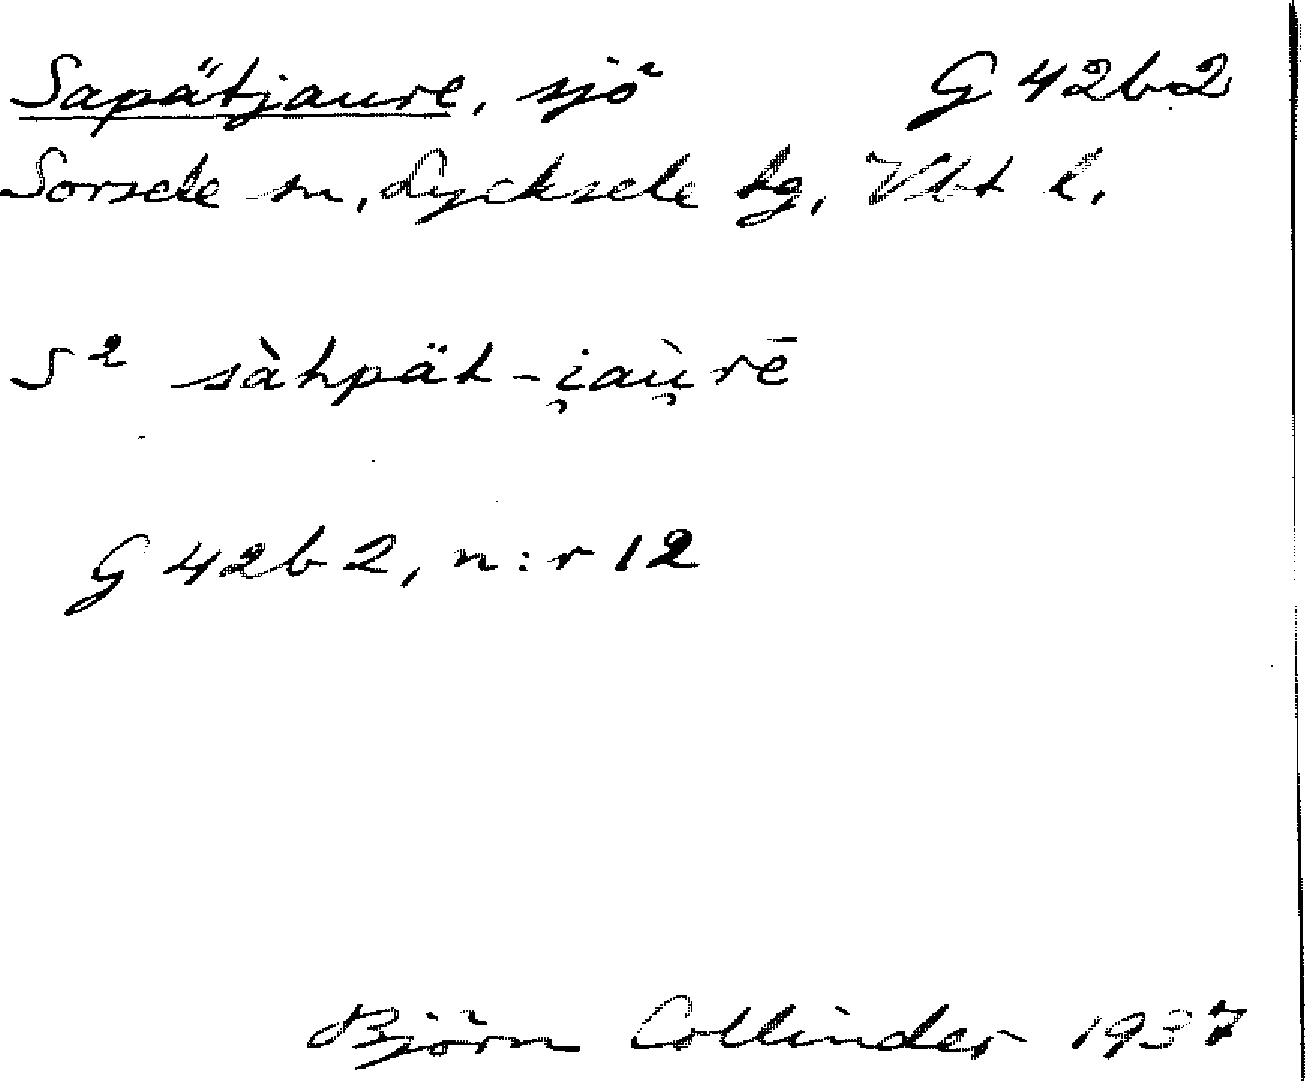 Sapätjaure, sjö G 42b2
Sorsele sn, Lycksele tg, Vbt l.
S² sàhpät-i̯aù̯rē
G 42b2, n:r 12
Björn Collinder 1937